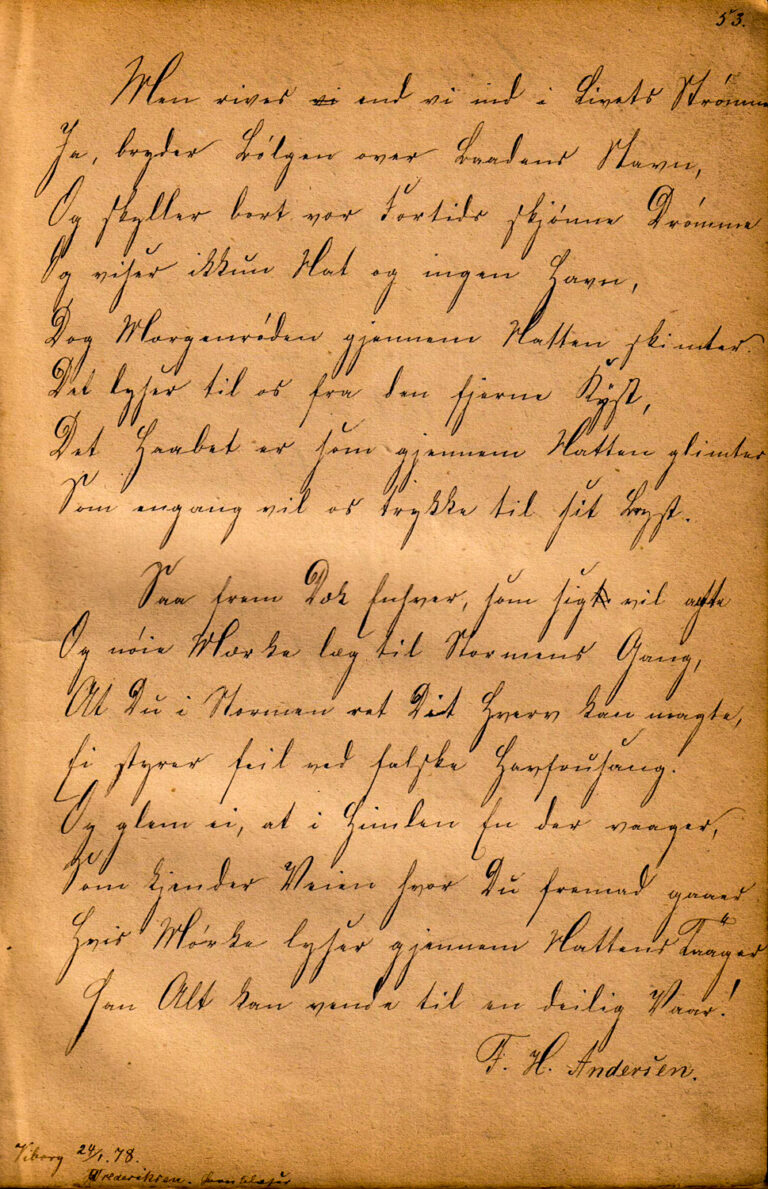 53.
Men rives vi end vi ind i Livets Strømme
Ja, bryder Bølgen over Baadens Stavn,
Og skyller bort vor Fortids skjønne Drømme
Og viser ikkun Nat og ingen Havn,
Dog Morgenrøden gjennem Natten skimter.
Det lyser til os fra den fjerne Kyst,
Det Haabet er som gjennem Natten glimter
Som engang vil os trykke til sit Bryst.
Saa frem Enhver, som sig vil agte
Og nøie Mærke læg til Stormens Gang,
At Du i Stormen ret Dit Hverv kan magte,
Ei styrer feil ved falske Havfrusang.
Og glem ei, at i Himlen En der vaager,
Som kjender Veien hvor Du fremad gaaer
Hvis Mørke lyser gjennem Nattens Taager
Han Alt kan vende til en deilig Vaar!
F. H. Andersen.
Viborg 24/1. 78.
Frederiksen.